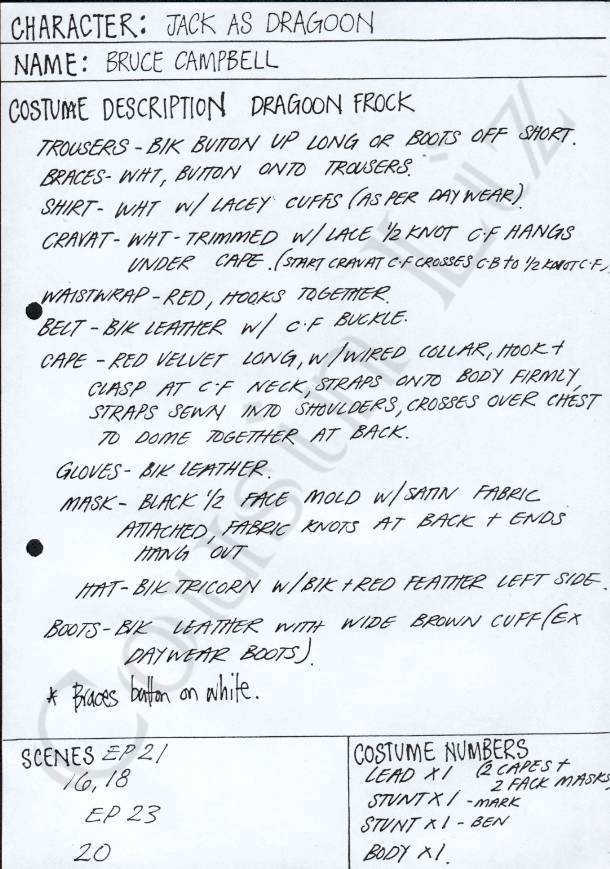 CHARACTER: JACK AS DRAGOON
NAME: BRUCE CAMPBELL
COSTUME DESCRIPTION DRAGOON FROCK
TROUSERS - BlK BUTTON UP LONG OR BOOTS OFF SHORT.
BRACES - WHT, BUTTON ONTO TROUSERS.
SHIRT - WHT W/ LACEY CUFFS (AS PER DAYWEAR)
CRAVAT - WHT - TRIMMED W/ LACE 1/2 KNOT C.F HANGS
UNDER CAPE. (START CRAVAT C.F CROSSES C.B to 1/2 KNOT C.F.)
WAISTWRAP - RED, HOOKS TOGETHER.
BELT - BlK LEATHER W/ C.F BUCKLE.
CAPE - RED VELVET LONG, W/WIRED COLLAR, HOOK +
CLASP AT C.F NECK, STRAPS ONTO BODY FIRMLY,
STRAPS SEWN INTO SHOULDERS, CROSSES OVER CHEST
TO DOME TOGETHER AT BACK.
GLOVES - BlK LEATHER.
MASK - BLACK 1/2 FACE MOLD W/SATIN FABRIC
ATTACHED, FABRIC KNOTS AT BACK + ENDS
HANG OUT
HAT - BlK TRICORN W/BlK + RED FEATHER LEFT SIDE.
BOOTS - BlK LEATHER WITH WIDE BROWN CUFF (EX
DAYWEAR BOOTS).
* Braces button on white.
SCENES EP 21
16, 18
EP 23
20
COSTUME NUMBERS
LEAD X1 (2 CAPES +
2 FACK MASKS
STUNT X 1 - MARK
STUNT X 1 - BEN
BODY X1.
Cousin Liz